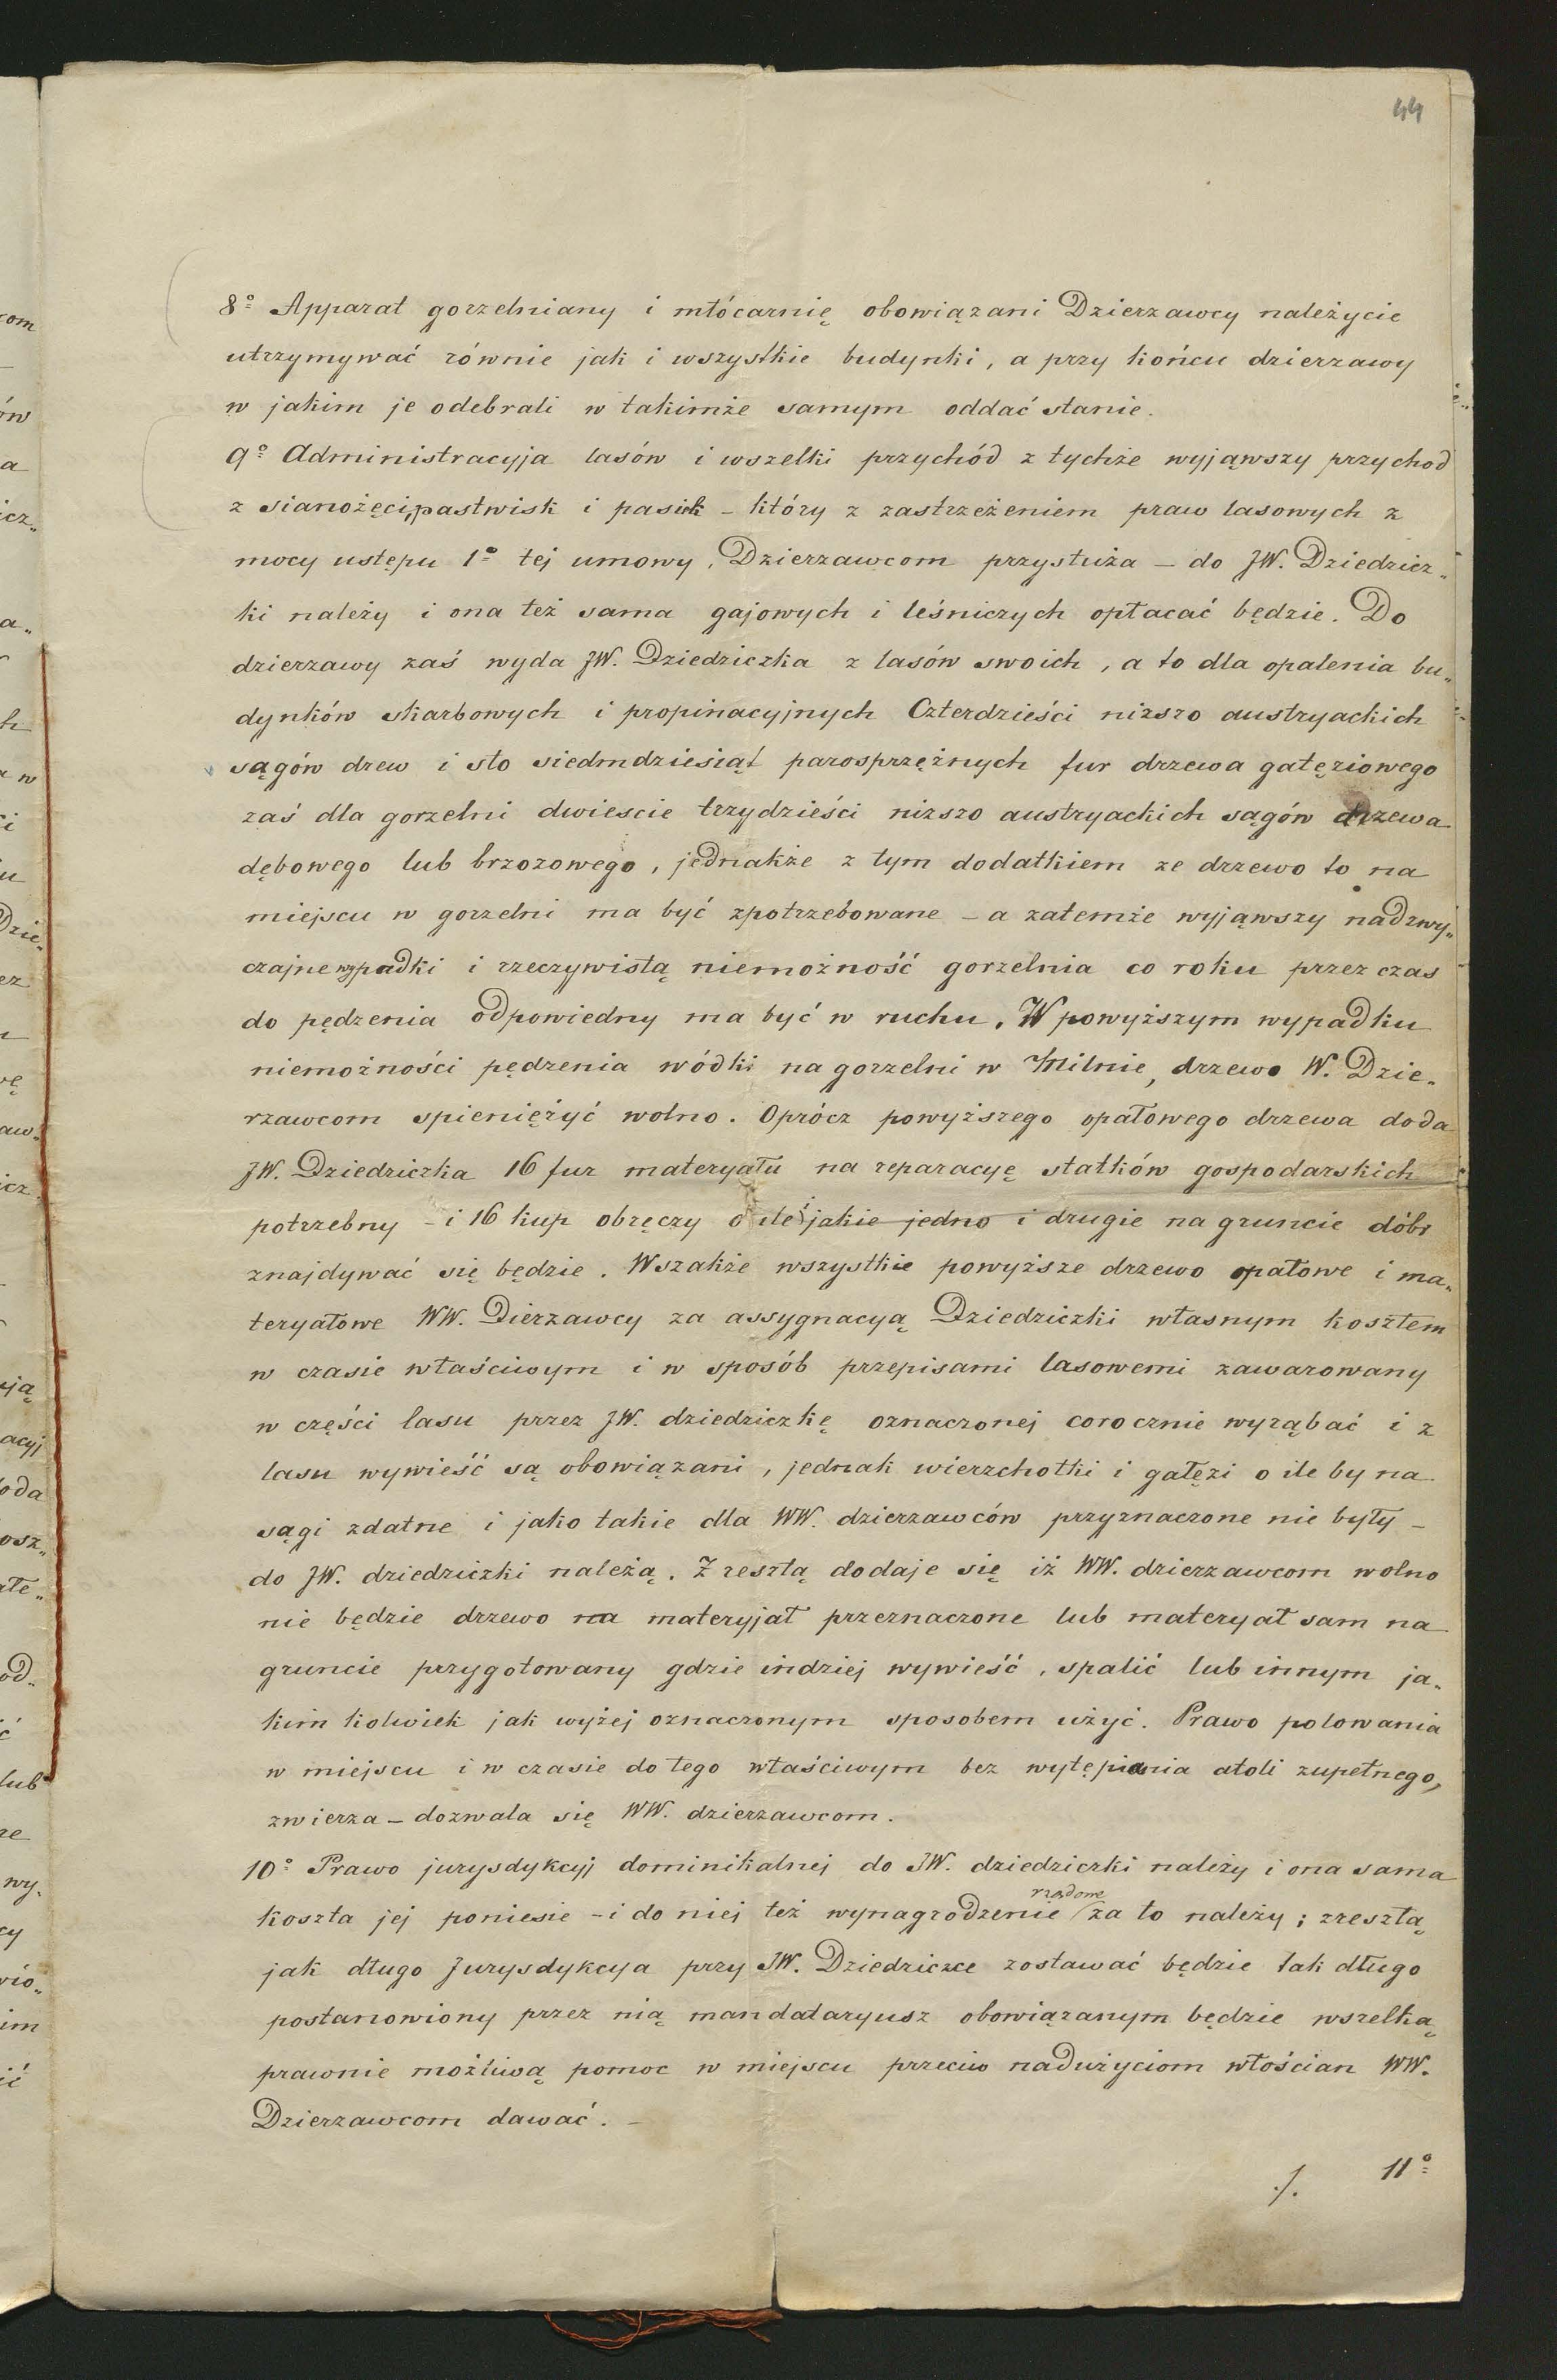 44
8º Apparat gorzelniany i młócarnię obowiązani Dzierzawcy należycie
utrzymywać równie jak i wszystkie budynki, a przy końcu dzierzawy
w jakim je odebrali w takimże samym oddać stanie.
9º Administracyja lasów i wszelki przychód z tychże wyjąwszy przychod
z sianożęci, pastwisk i pasiek – który z zastrzeżeniem praw lasowych z
mocy ustępu 1º tej umowy, Dzierzawcom przysłuża – do JW. Dziedzicz„
ki należy i ona też sama gajowych i leśniczych opłacać będzie. Do
dzierzawy zaś wyda JW. Dziedziczka z lasów swoich, a to dla opalenia bu„
dynków skarbowych i propinacyjnych Czterdzieści nizszo austryackich
sągów drew i sto siedmdziesiąt parosprzężnych fur drzewa gałęziowego
zaś dla gorzelni dwiescie trzydzieści nizszo austryackich sągów drzewa
dębowego lub brzozowego, jednakże z tym dodatkiem ze drzewo to na
miejscu w gorzelni ma być zpotrzebowane – a zatemże wyjąwszy nadzwy„
czajne wypadki i rzeczywistą niemożność gorzelnia co roku przez czas
do pędzenia odpowiedny ma być w ruchu. W powyższym wypadku
niemożności pędzenia wódki na gorzelni w Milnie, drzewo W. Dzie„
rzawcom spieniężyć wolno. Oprócz powyższego opałowego drzewa doda
JW. Dziedziczka 16 fur materyału na reparacyę statków gospodarskich
potrzebny – i 16 kup obręczy o ile i jakie jedno i drugie na gruncie dóbr
znajdywać się będzie. Wszakże wszystkie powyższe drzewo opałowe i ma„
teryałowe WW. Dierzawcy za assygnacyą Dziedziczki własnym kosztem
w czasie właściwym i w sposób przepisami lasowemi zawarowany
w części lasu przez JW. dziedziczkę oznaczonej corocznie wyrąbać i z
lasu wywieść są obowiązani, jednak wierzchołki i gałęzi o ile by na
sągi zdatne i jako takie dla WW. dzierzawców przyznaczone nie były –
do JW. dziedziczki należą. Z resztą dodaje się iż WW. dzierzawcom wolno
nie będzie drzewo na materyjał przeznaczone lub materyał sam na
gruncie przygotowany gdzie indziej wywieść, spalić lub innym ja„
kim kolwiek jak wyżej oznaczonym sposobem użyć. Prawo polowania
w miejscu i w czasie do tego właściwym bez wytępiania atoli zupełnego,
zwierza – dozwala się WW. dzierzawcom.
10º Prawo jurysdykcyj dominikalnej do JW. dziedziczki należy i ona sama
koszta jej poniesie – i do niej też wynagrodzenie rządowe za to należy; zresztą
jak długo Jurysdykcya przy JW. Dziedziczce zostawać będzie tak długo
postanowiony przez nią mandataryusz obowiązanym będzie wszelką
prawnie możliwą pomoc w miejscu przeciw nadużyciom włościan WW.
Dzierzawcom dawać. –
./. 11º